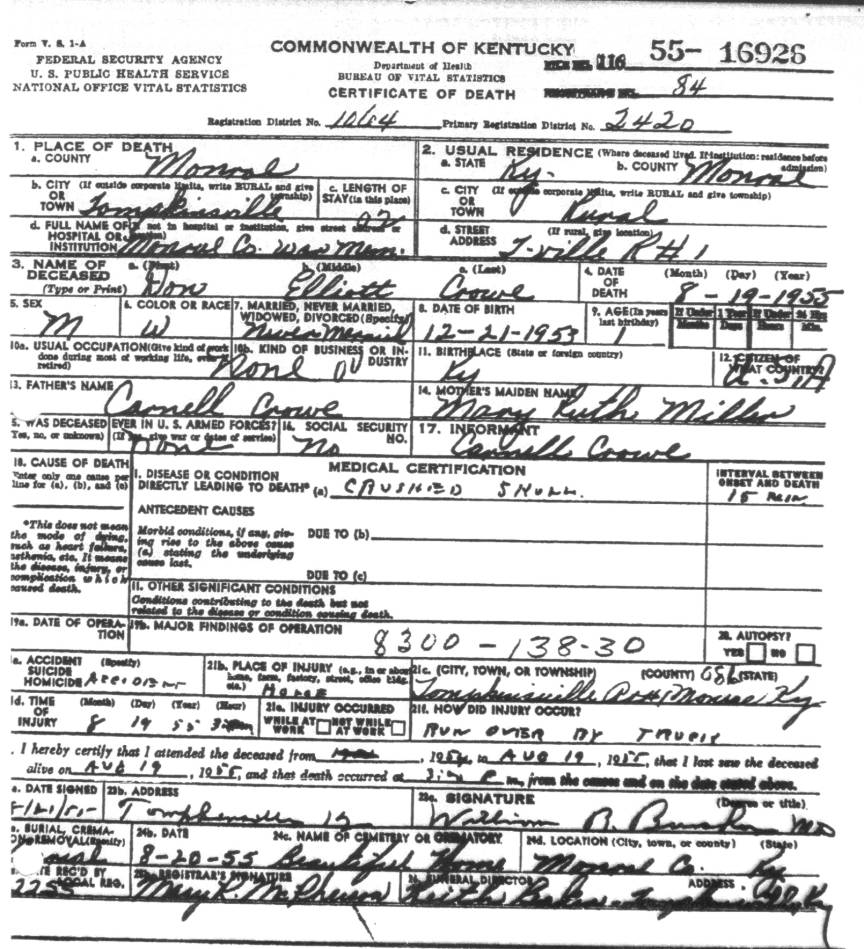 Form V. S. 1-A
COMMONWEALTH OF KENTUCKY
116 55- 16926
FEDERAL SECURITY AGENCY
U. S. PUBLIC HEALTH SERVICE
NATIONAL OFFICE VITAL STATISTICS
Department of Health
BUREAU OF VITAL STATISTICS
CERTIFICATE OF DEATH
84
Registration District No. 1064 Primary Registration District No. 2420
1. PLACE OF DEATH
a. COUNTY Monroe
2. USUAL RESIDENCE (Where deceased lived. If institution: residence before admission)
a. STATE Ky. b. COUNTY Monroe
b. CITY (If outside corporate limits, write RURAL and give township)
OR
TOWN Tompkinsville
c. LENGTH OF
STAY (in this place)
c. CITY (If outside corporate limits, write RURAL and give township)
OR
TOWN Rural
d. FULL NAME OF (If not in hospital or institution, give street address or location)
HOSPITAL OR
INSTITUTION Monroe Co. War Mem.
d. STREET (If rural, give location)
ADDRESS T-ville R # 1
3. NAME OF
DECEASED
(Type or Print)
a. (First) Don b. (Middle) Elliott c. (Last) Crowe
4. DATE
OF
DEATH
(Month) (Day) (Year)
8 - 19 - 1955
5. SEX
M
6. COLOR OR RACE
W
7. MARRIED, NEVER MARRIED,
WIDOWED, DIVORCED (Specify)
Never Married
8. DATE OF BIRTH
12-21-1953
9. AGE (In years
last birthday)
1
If Under 1 Year
Months Days
If Under 24 Hrs
Hours Min.
10a. USUAL OCCUPATION (Give kind of work
done during most of working life, even if
retired)
None
10b. KIND OF BUSINESS OR IN-
DUSTRY
11. BIRTHPLACE (State or foreign country)
Ky
12. CITIZEN OF
WHAT COUNTRY?
U.S.A
13. FATHER'S NAME
Carnell Crowe
14. MOTHER'S MAIDEN NAME
Mary Ruth Miller
5. WAS DECEASED EVER IN U. S. ARMED FORCES?
Yes, no, or unknown) (If yes, give war or dates of service)
None
16. SOCIAL SECURITY
NO.
No
17. INFORMANT
Carnell Crowe
18. CAUSE OF DEATH
Enter only one cause per
line for (a), (b), and (c)
MEDICAL CERTIFICATION
INTERVAL BETWEEN
ONSET AND DEATH
I. DISEASE OR CONDITION
DIRECTLY LEADING TO DEATH* (a) CRUSHED SKULL.
15 min
*This does not mean
the mode of dying,
such as heart failure,
asthenia, etc. It means
the disease, injury, or
complication which
caused death.
ANTECEDENT CAUSES
Morbid conditions, if any, giv-
ing rise to the above cause
(a) stating the underlying
cause last.
DUE TO (b)
DUE TO (c)
II. OTHER SIGNIFICANT CONDITIONS
Conditions contributing to the death but not
related to the disease or condition causing death.
19a. DATE OF OPERA-
TION
19b. MAJOR FINDINGS OF OPERATION
8300 - 138-30
20. AUTOPSY?
YES NO
1a. ACCIDENT (Specify)
SUICIDE
HOMICIDE Accident
21b. PLACE OF INJURY (e.g., in or about
home, farm, factory, street, office bldg.
etc.)
Home
21c. (CITY, TOWN, OR TOWNSHIP) (COUNTY) (STATE)
Tompkinsville Monroe Ky
1d. TIME
OF
INJURY
(Month) (Day) (Year) (Hour)
8 19 55
21e. INJURY OCCURRED
WHILE AT WORK NOT WHILE AT WORK
21f. HOW DID INJURY OCCUR?
RUN OVER BY TRUCK
. I hereby certify that I attended the deceased from , to AUG 19, 1955, that I last saw the deceased
alive on AUG 19, 1955, and that death occurred at m., from the causes and on the date stated above.
a. DATE SIGNED
23b. ADDRESS
23c. SIGNATURE (Degree or title)
William B. MD
a. BURIAL, CREMA-
TION REMOVAL (Specify)
24b. DATE
8-20-55
24c. NAME OF CEMETERY OR CREMATORY
Beautiful Home
24d. LOCATION (City, town, or county) (State)
Monroe Co. Ky.
DATE REC'D BY
LOCAL REG.
2255
REGISTRAR'S SIGNATURE
Mary R. McPherson
FUNERAL DIRECTOR ADDRESS
Keith Ky